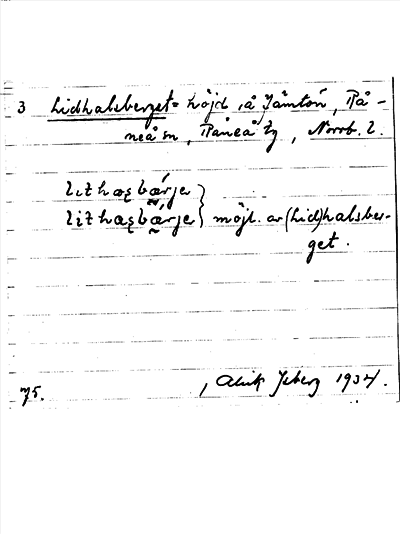 3 Lidhalsberget = höjd å Jämtön, Rå-
neå sn, Råneå tg, Norrb. l.
lithæsbærje
lithæsbærje } möjl. av (Lid)halsber-
get.
75. Isberg 1934.